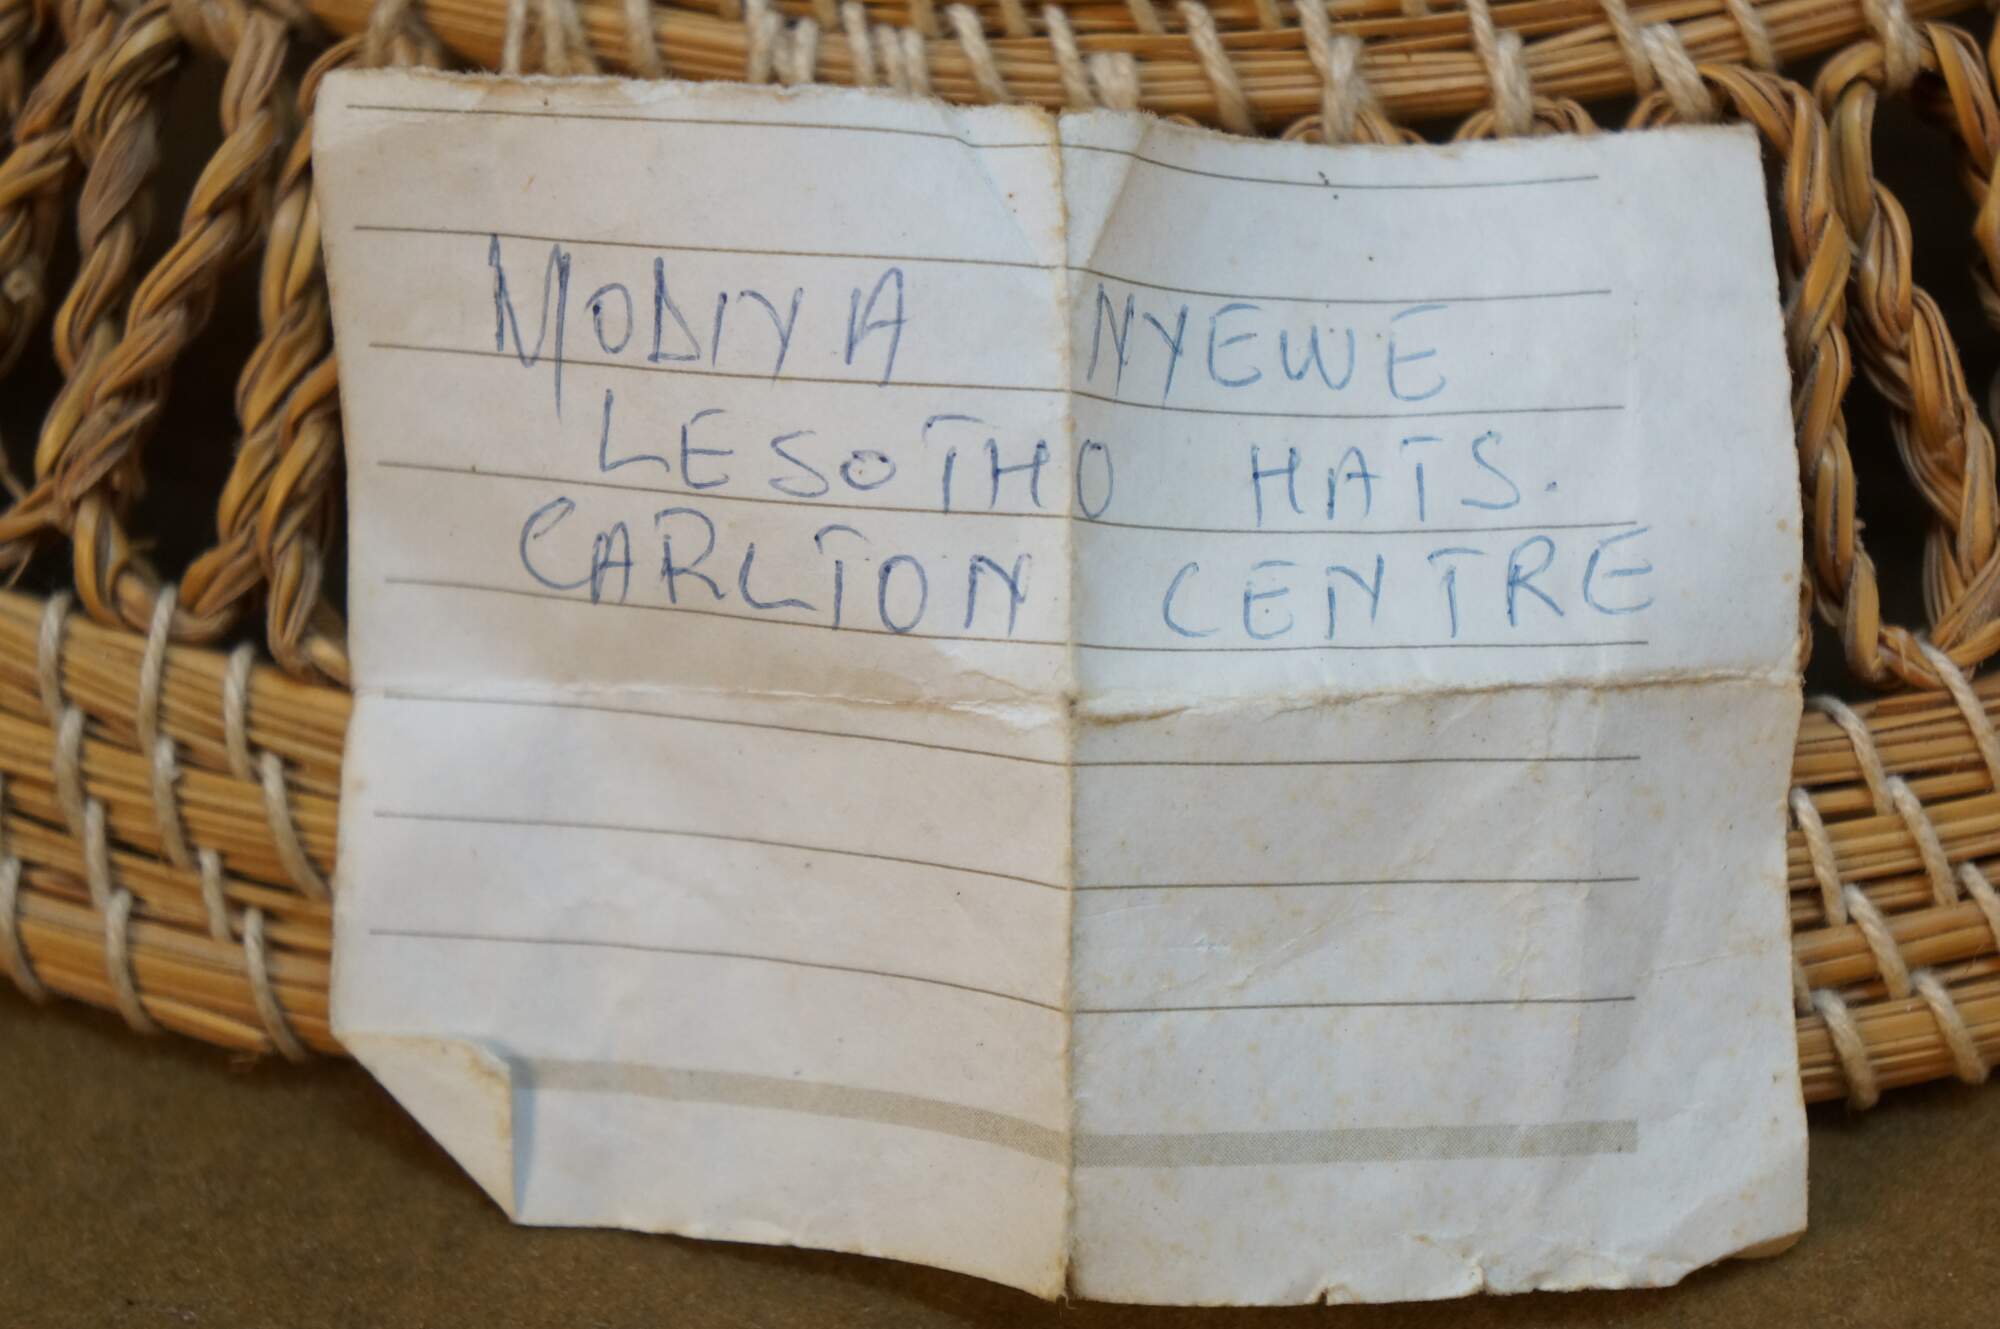 MODIYA NYEWE
LESOTHO HATS.
CARLTON CENTRE